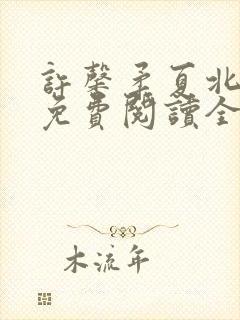 許馨矛夏北
免費閱讀全
木流年